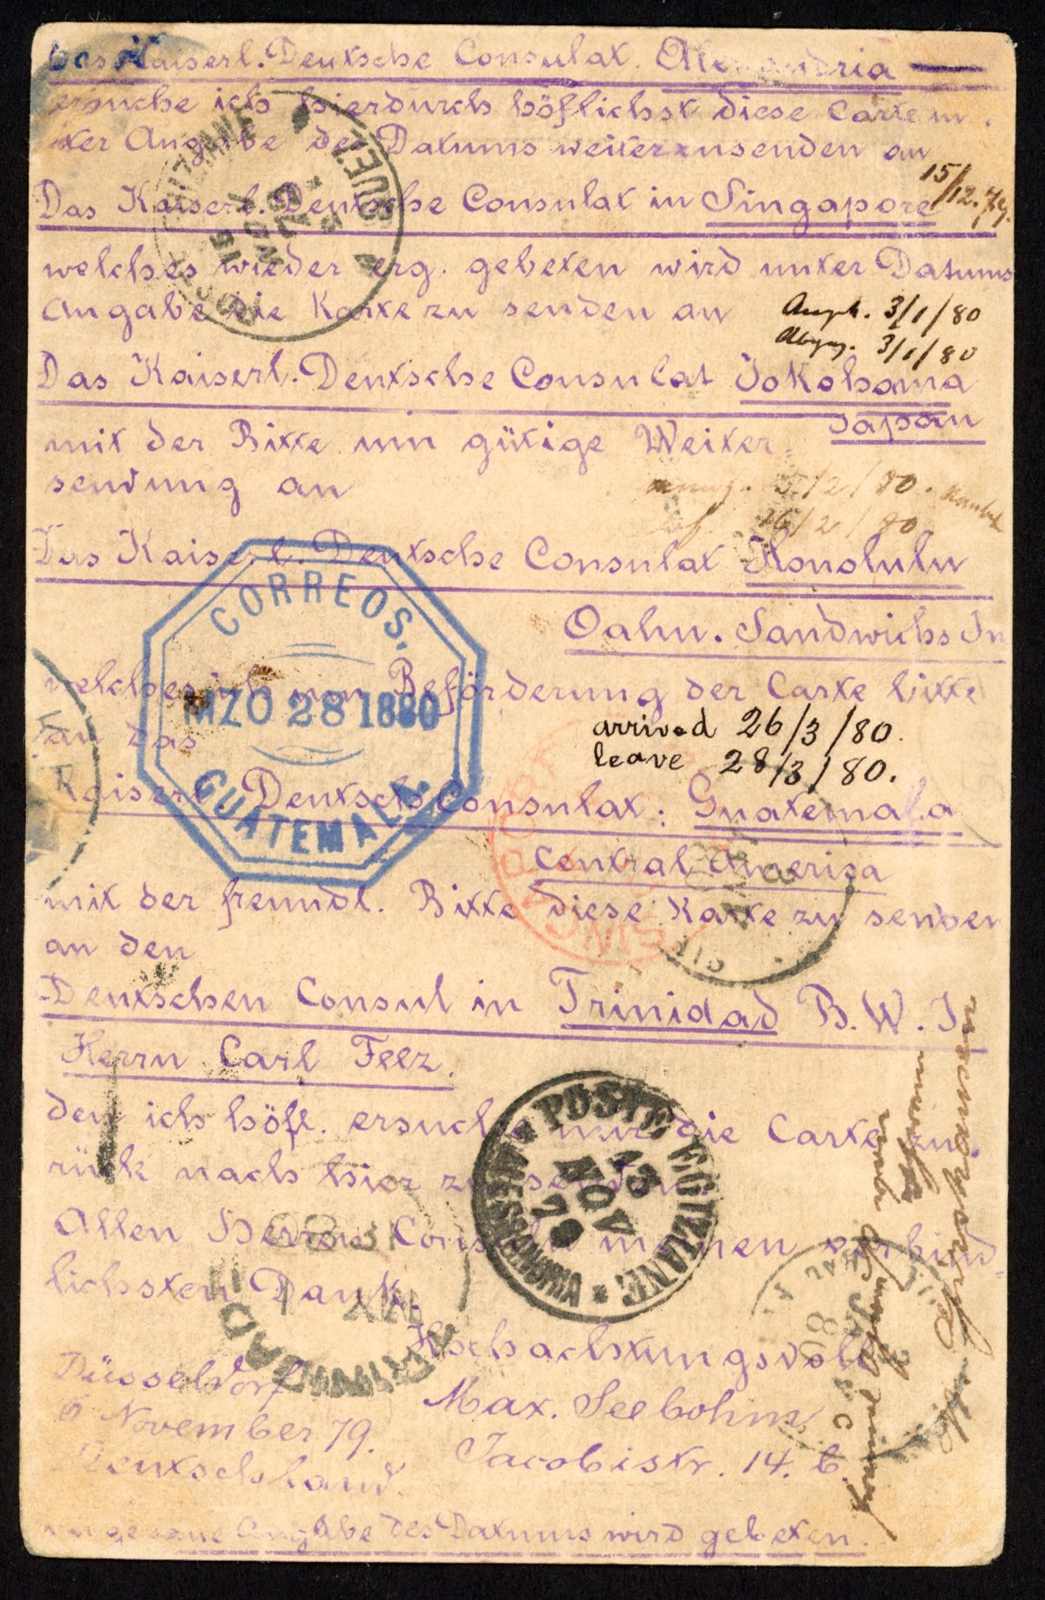 Das Kaiserl. Deutsche Consulat. Alexandria
ersuche ich hierdurch höflichst diese Carte un-
ter Angabe des Datums weiterzusenden an
15/12. 79.
Das Kaiserl. Deutsche Consulat in Singapore
welches wieder erg. gebeten wird unter Datums
Angabe die Karte zu senden an
3/1/80
3/1/80
Das Kaiserl. Deutsche Consulat Jokohama
Japan
mit der Bitte um gütige Weiter
sendung an
/2/80.
16/2/80
Das Kaiserl. Deutsche Consulat Honolulu
Oahu. Sandwichs In
welches ich um Beförderung der Carte bitte
an das
arrived 26/3/80.
leave 28/3/80.
Kaiserl. Deutsche Consulat: Guatemala
Central America
mit der freundl. Bitte diese Karte zu senden
an den
Deutschen Consul in Trinidad B. W. I
Herrn Carl Feez.
den ich höfl. ersuche mir die Carte zu-
rück nach hier zu senden
Allen Herren Consuln meinen verbind
lichsten Dank.
Hochachtungsvoll
Max. Seebohm
Jacobistr. 14. b
Düsseldorf
6 November 79.
Deutschland.
um genaue Angabe des Datums wird gebeten.
SUEZ
15 NOV 79
CORREOS.
MZO 28 1880
GUATEMALA.
POSTE EGIZIANE
ALESSANDRIA
13 NOV 79
TRINIDAD